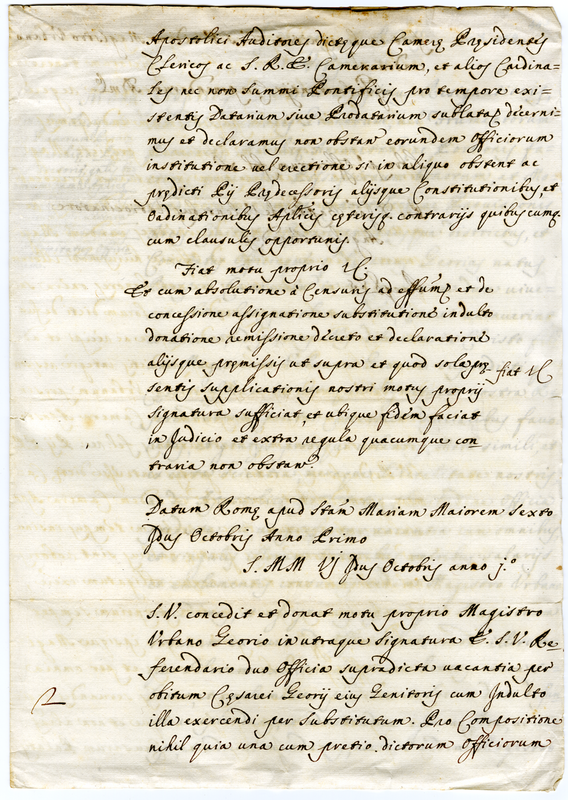 Apostolici Auditores dictęque Camerę Pręsidentes
Clericos ac S. R. E. Camerarium, et alios Cardina=
les nec non Summi Pontificis pro tempore exi=
stentis Datarium siue Prodatarium sublatā decerni=
mus et declaramus non obstan̄ eorundem Officiorum
institutione uel erectione si in aliquo obstent ac
prędicti Pij Prędecessoris alijsque Constitutionibus, et
Ordinationibus Aplicis cęterisq. contrarijs quibuscumq.
cum clausulis opportunis.
Fiat motu proprio
Et cum absolutione à Censuris ad effūm et de
concessione assignatione substitutione indulto
donatione remissione decreto et declaratione
alijsque pręmissis ut supra et quod sola prę
fiat
sentis supplicationis nostri motus proprij
signatura sufficiat, et ubique fidem faciat
in Judicio et extra regula quacumque con
traria non obstan̄.
Datum Romę apud Stam̄ Mariam Maiorem Sexto
Idus Octobris Anno Primo
S. MM Vj Idus Octobris anno j.º
S. V. concedit et donat motu proprio Magistro
Vrbano Georio in utraque signatura E. S. V. Re
ferendario duo Officia supradicta uacantia per
obitum Cęsarei Georij eius Genitoris cum Indulto
illa exercendi per Substitutum. Pro Compositione
nihil quia una cum pretio dictorum Officiorum